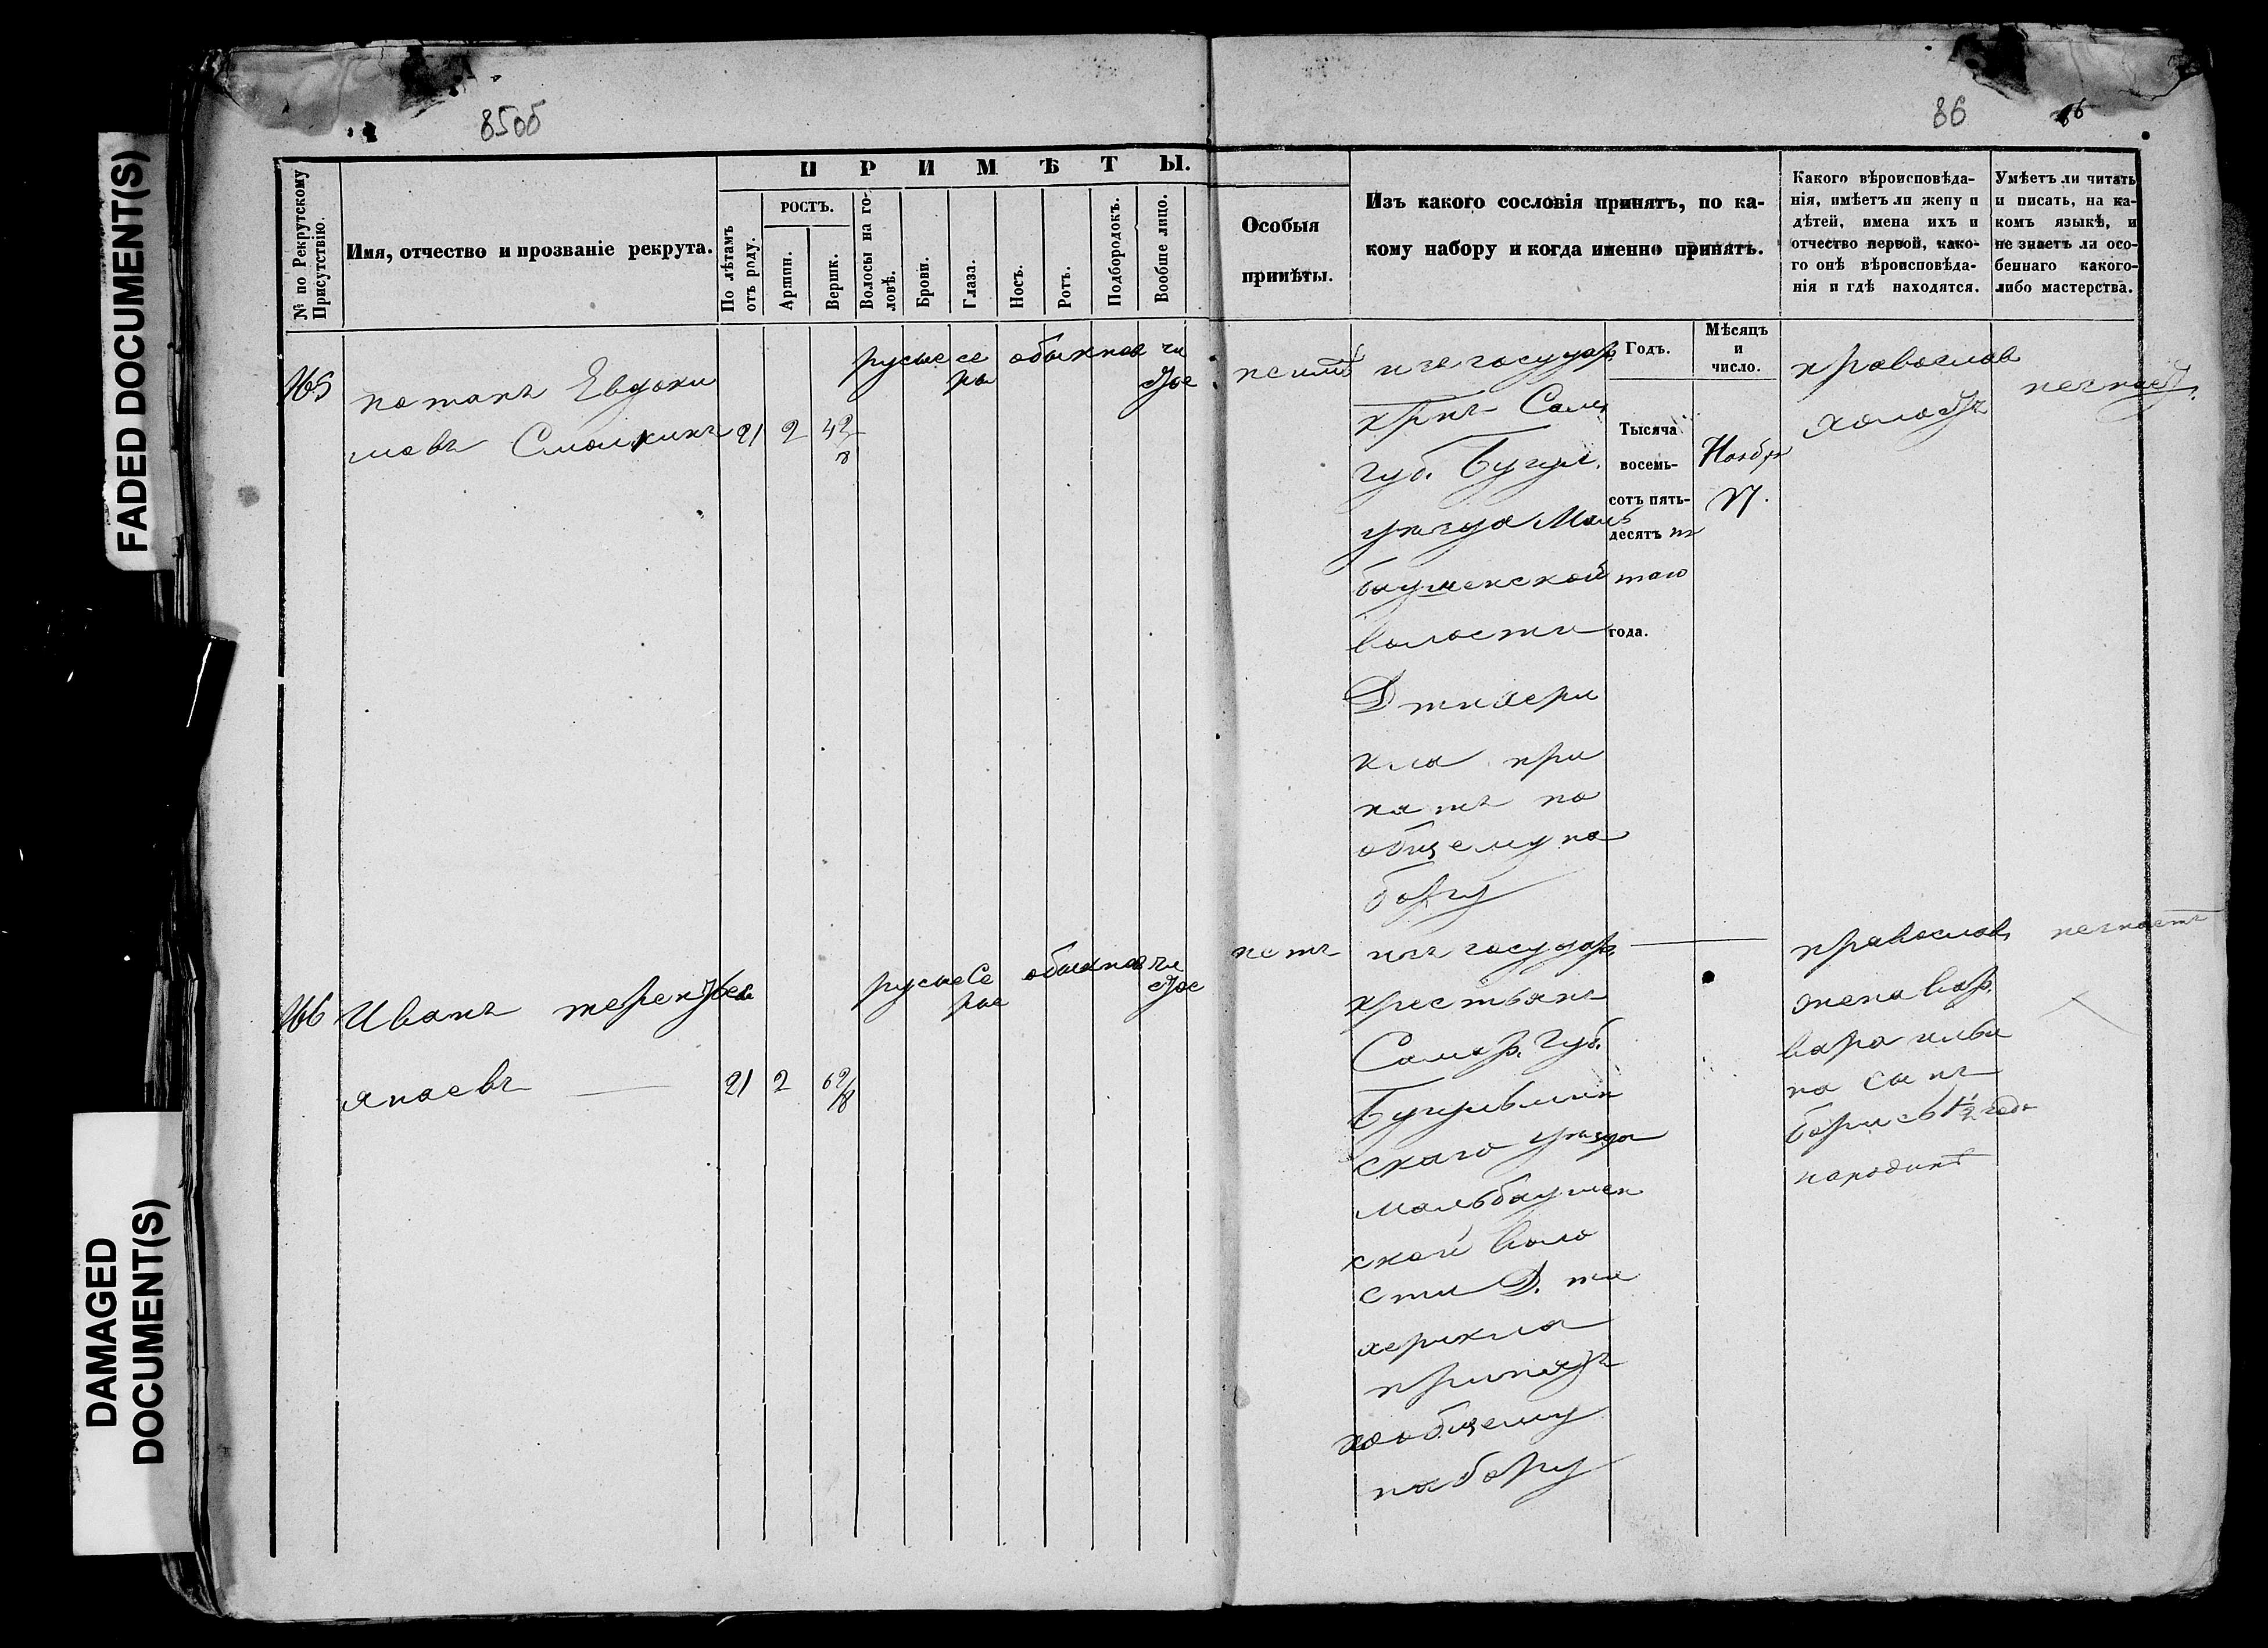 FADED DOCUMENT(S)
DAMAGED
DOCUMENT(S)
85об
86
86
ПРИМѢТЫ.
№ по Рекрутскому
Присутствію.
Имя, отчество и прозваніе рекрута.
По лѣтамъ
отъ роду.
РОСТЪ.
Аршин.
Вершк.
Волосы на го-
ловѣ.
Брови.
Глаза.
Носъ.
Ротъ.
Подбородокъ.
Вообще лицо.
Особыя
примѣты.
Изъ какого сословія принятъ, по ка-
кому набору и когда именно принятъ.
Какого вѣроисповѣда-
нія, имѣетъ ли жену и
дѣтей, имена ихъ и
отчество первой, како-
го онѣ вѣроисповѣда-
нія и гдѣ находятся.
Умѣетъ ли читать
и писать, на ка-
комъ языкѣ, и
не знаетъ ли осо-
беннаго какого-
либо мастерства.
165
потапъ Евдоки
мовъ
21 2 4 2/8
русые се
ры
обыкнов чи
стое
изъ государ
крпъ Сам.
губ. Бугул.
уѣзда Маль
баушенской
волости
Д тиxери
кла при
нятъ по
общему на
бору
Годъ.
Тысяча
восемь-
сотъ пять-
десятъ пя
таго
года.
Мѣсяцъ
и
число.
Ноября
17.
православ
холостъ
незнаетъ
166
Иванъ терентьев
япаевъ
21 2 6 2/8
русые Се
рые
обыкнов чи
стое
нетъ
изъ государ
крестьянъ
Самар. Губ.
Бугульмин
скаго уѣзда
мальбаушен
ской воло
сти Д. ти
херикла
принятъ
по общему
набору
православ
жена вар
вара ильи
на сынъ
борисъ 1 1/2 года
народинѣ
незнаетъ